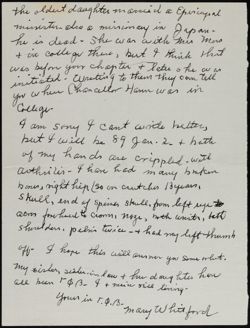 the oldest daughter married a Episcopal
minister also a missionary in Japan -
he is dead - She was with this man
+ in College there, but I think that
was before your chapter + later she was
initiated. Writing to them they can tell
you where Chancellor Hamm was in
College.
I am sorry I cant write better,
but I will be 89 Jan. 2 + both
of my hands are crippled with
arthritis - I have had many broken
bones, right hip (so on crutches 13 years,
skull, end of spine, skull from left eye to
across forehead to crown, nose, both wrists, both
shoulders, pelvis twice - + had my left thumb
off - I hope this will answer you somewhat.
My sister, sister-in-law + her daughter have
all been Γ.Φ.Β. + I + niece still living.
Yours in Γ.Φ.Β.
Mary Whitford